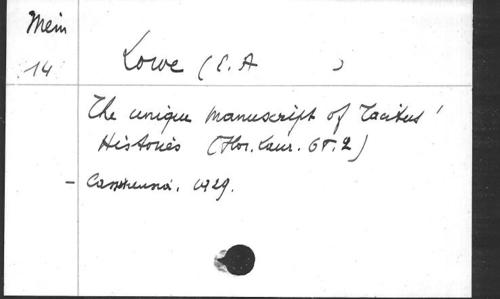 Mein
14
Lowe (E.A )
The unique manuscript of Tacitus'
Histories (Flor. Laur. 68.2)
- Casinensia. 1929.